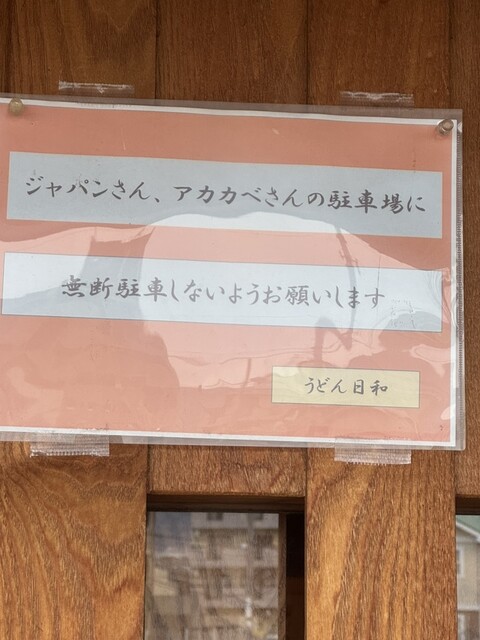 ジャパンさん、アカカベさんの駐車場に
無断駐車しないようお願いします
うどん日和